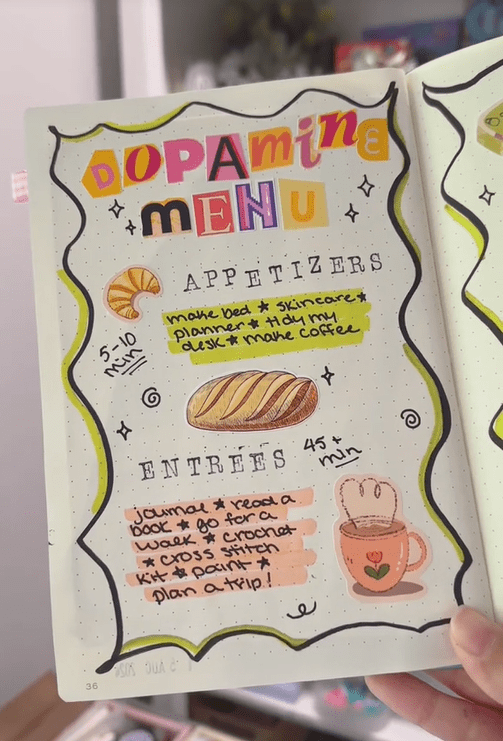 DOPAMiNE
MENU
APPETIZERS
make bed ★ skincare ★
planner ★ tidy my
desk ★ make coffee
5-10
min
ENTREES
45+
min
journal ★ read a
book ★ go for a
walk ★ crochet
★ cross stitch
kit ★ paint ★
plan a trip!
36